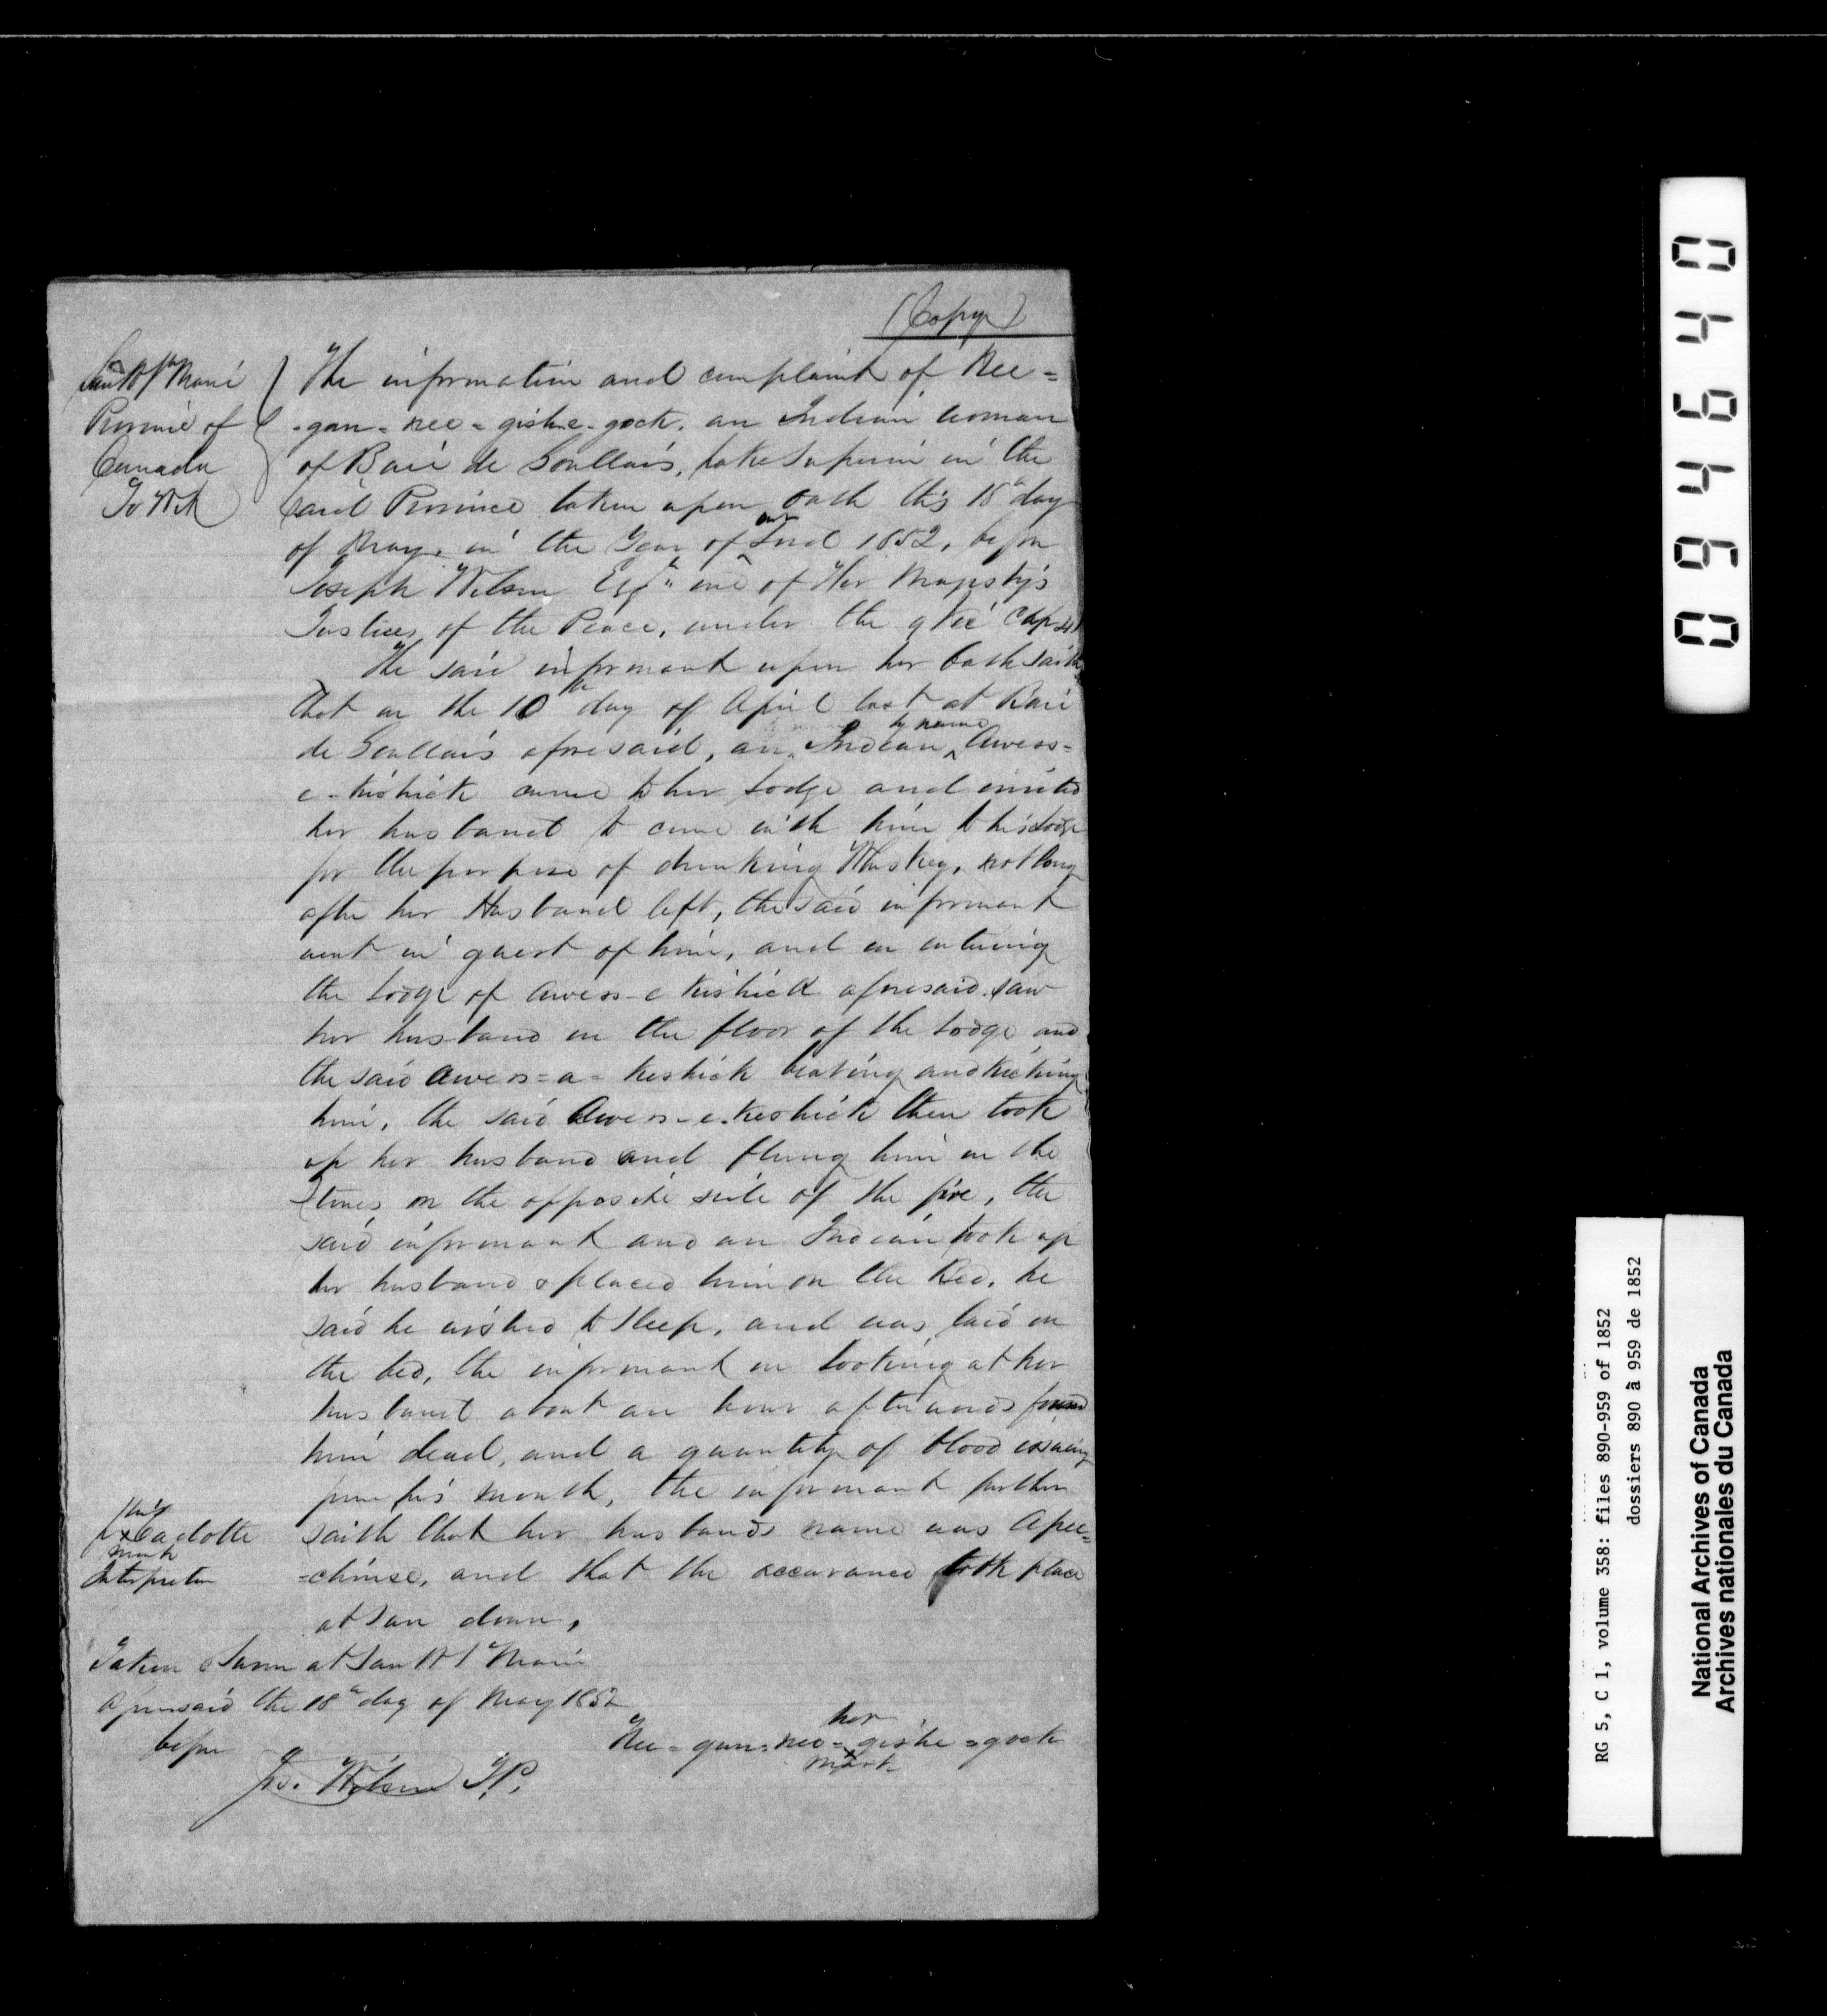 (Copy)
Sault Ste Marie
Province of
Canada
To Wit
The information and complaint of Nee=
-gan-nee=gishe-gock. an Indian woman
of Baie de Goullais, Lake Superior in the
said Province taken upon oath this 18th day
of May, in the Year of our Lord 1852, before
Joseph Wilson Esqr one of Her Majesty's
Justices of the Peace, under the 9 Vic Cap 41
The said informant upon her Oath saith
that on the 10th day of April last at Baie
de Goullais aforesaid, an Indian by name Awess=
e-kishick came to her Lodge and invited
her husband to come with him to his Lodge
for the purpose of drinking Whiskey, not long
after her Husband left, the said informant
went in quest of him, and on entering
the Lodge of Awess-e kishick aforesaid. saw
her husband on the floor of the Lodge and
the said Awess=a=keshick beating and kicking
him, the said Awess-e-keshick then took
up her husband and flung him on the
Stones on the opposite side of the fire, the
said informant and an Indian took up
her husband & placed him on the Bed, he
said he wished to sleep, and was laid on
the bed, the informant on looking at her
husband about an hour afterwards found
him dead, and a quantity of blood issuing
from his mouth, the informant further
saith that her husbands name was Apee=
=chinse, and that the occurance took place
at sun down,
his
x Cadotte
mark
Interpreter
Taken & Sworn at Sault St Marie
aforesaid the 18th day of May 1852
before
Jos. Wilson J.P.
her
Nee=gun=nee=gishe=gock
x
mark
094640
RG 5, C 1, volume 358: files 890-959 of 1852
dossiers 890 à 959 de 1852
National Archives of Canada
Archives nationales du Canada